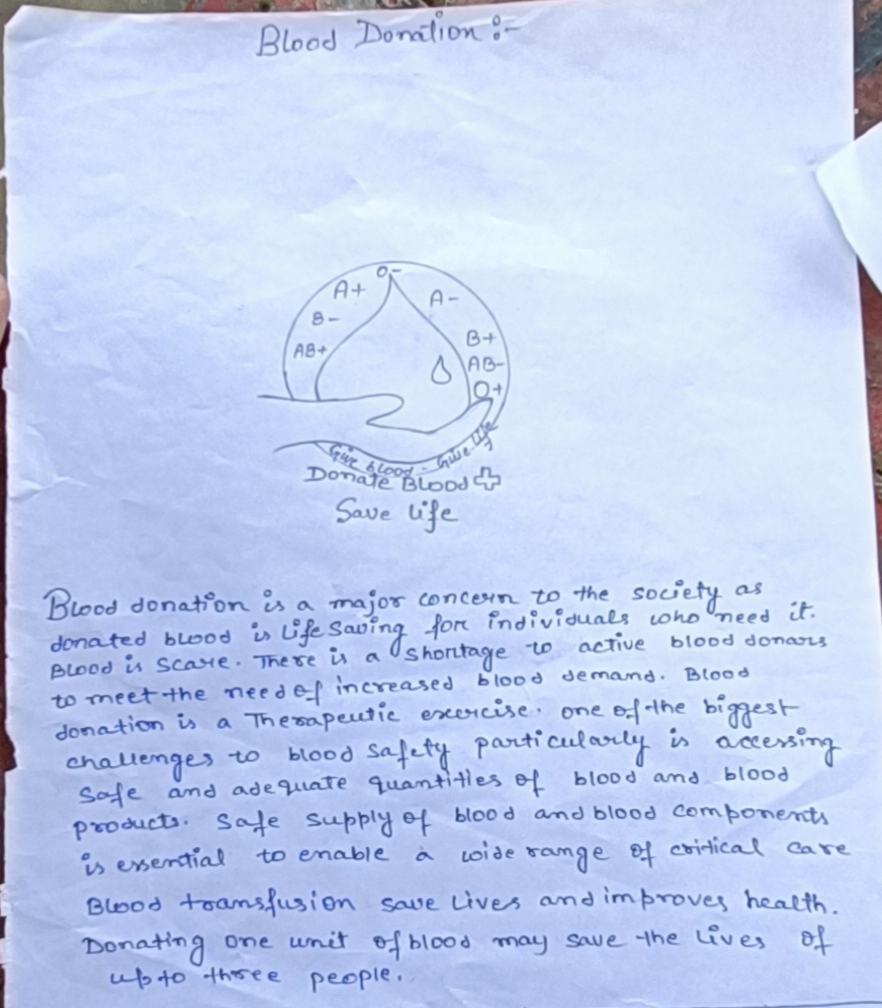 Blood Donation :-
O-
A+
A-
B-
B+
AB+
AB-
O+
Give blood - Give life
Donate Blood
Save life
Blood donation is a major concern to the society as
donated blood is life saving for individuals who need it.
Blood is scare. There is a shortage to active blood donars
to meet the need of increased blood demand. Blood
donation is a Therapeutic exercise. one of the biggest
challenges to blood safety particularly is accessing
safe and adequate quantities of blood and blood
products. Safe supply of blood and blood components
is essential to enable a wide range of critical care
Blood transfusion save lives and improves health.
Donating one unit of blood may save the lives of
up to three people.